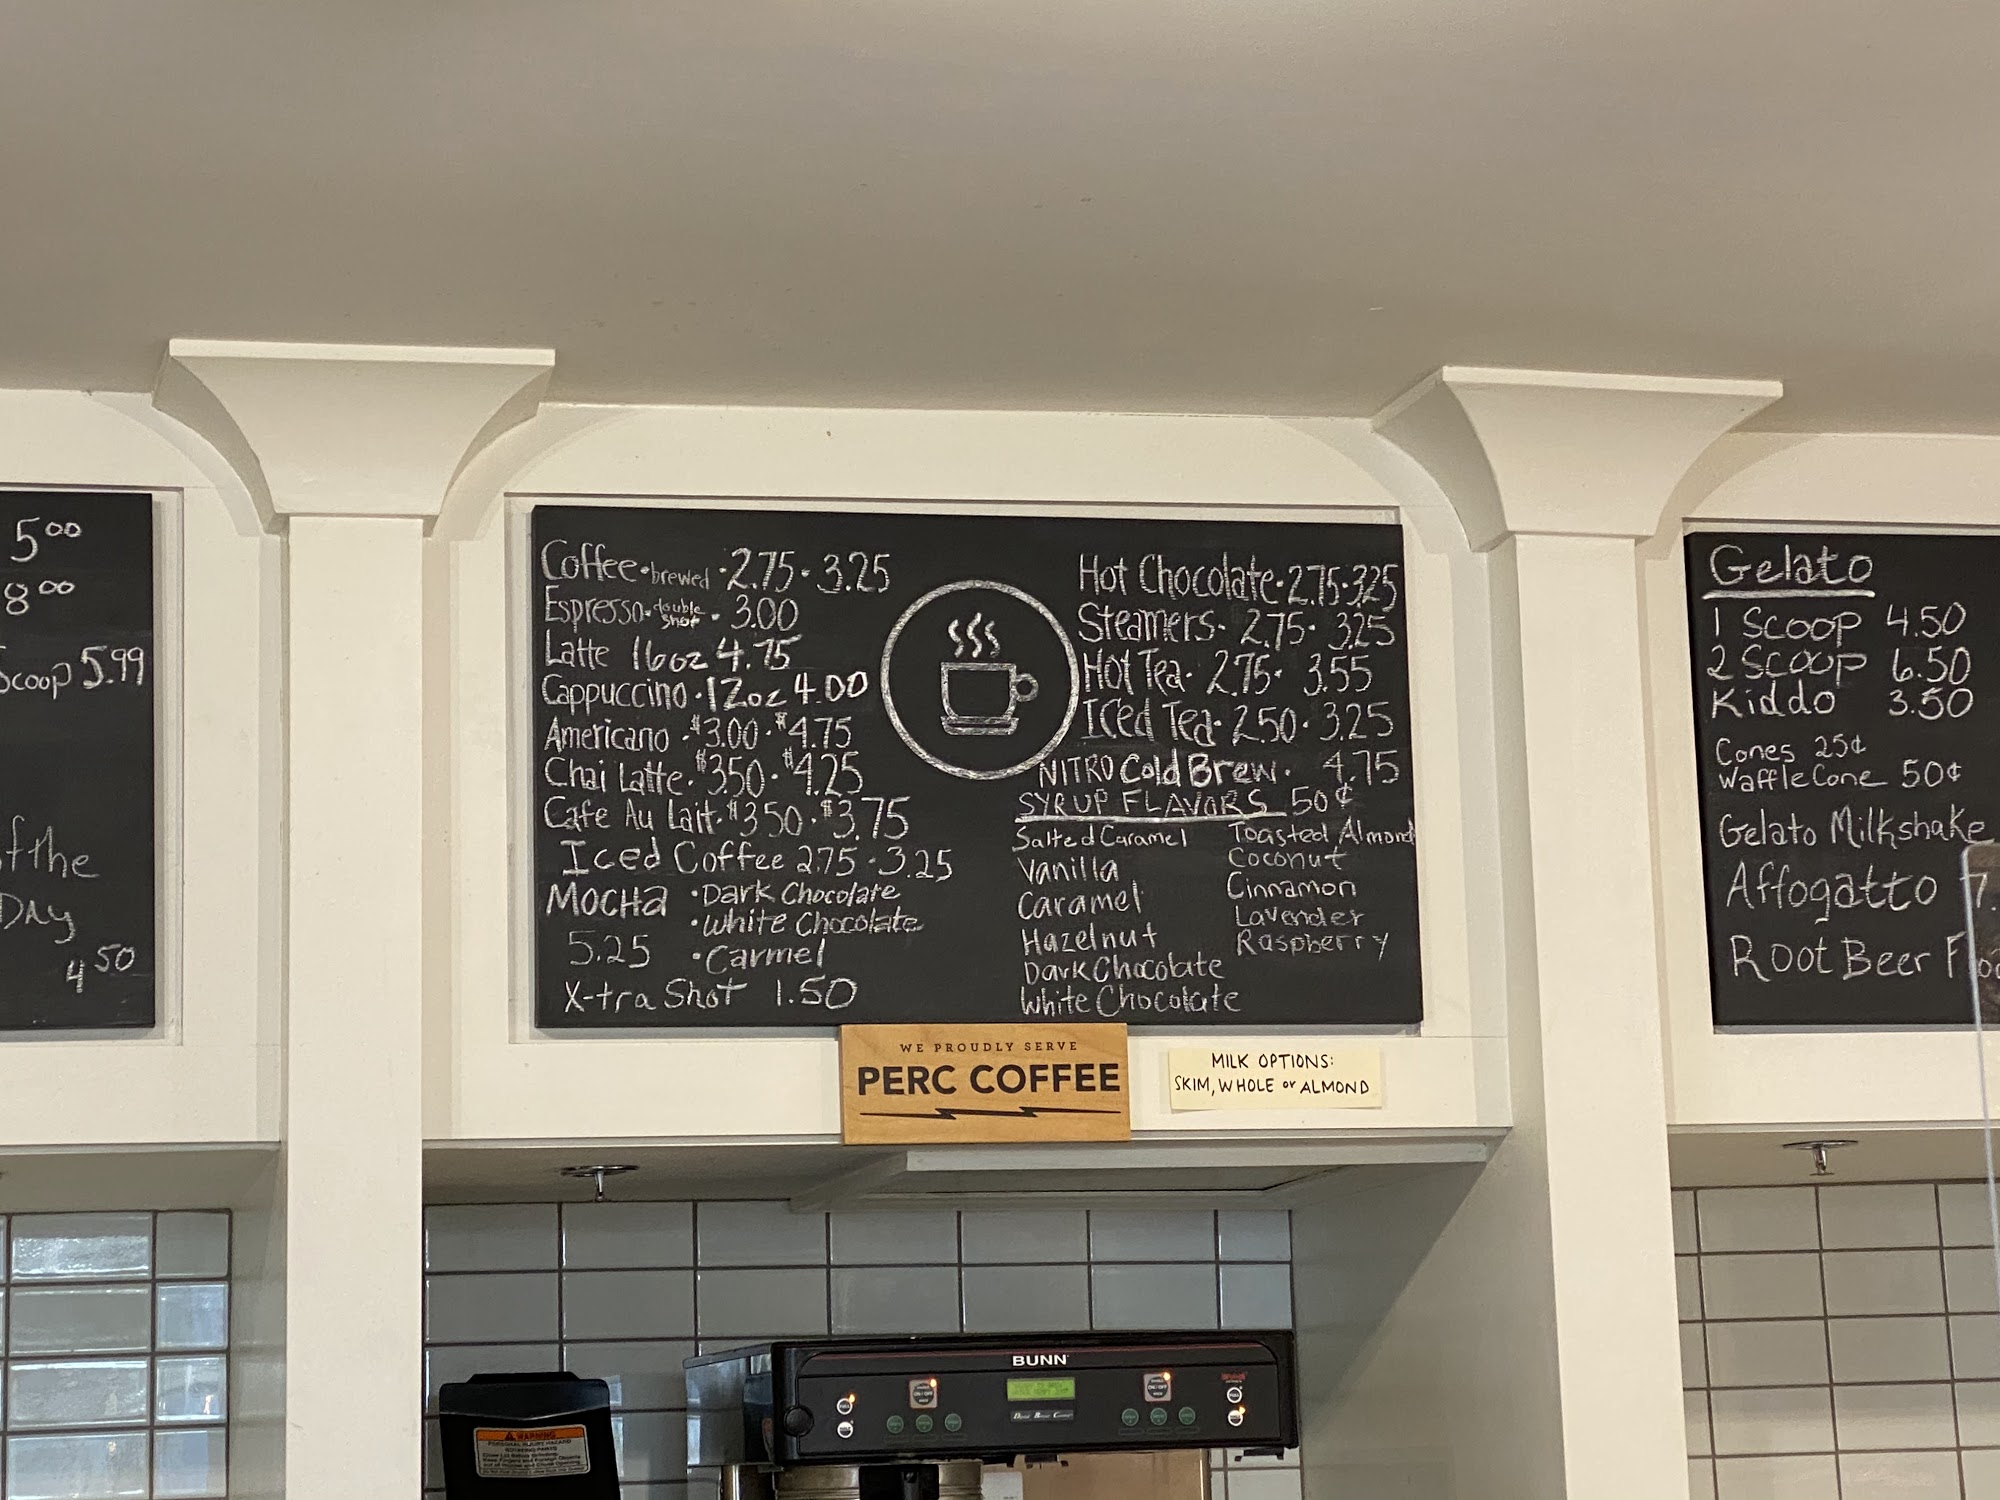 5.00
8.00
Scoop 5.99
of the
Day
4.50
Coffee • brewed • 2.75 • 3.25
Espresso - double shot • 3.00
Latte 16oz 4.75
Cappuccino • 12oz 4.00
Americano • $3.00 • $4.75
Chai Latte • $3.50 • $4.25
Cafe Au Lait • $3.50 • $3.75
Iced Coffee 2.75 • 3.25
Mocha • Dark Chocolate
• White Chocolate
5.25 • Carmel
X-tra Shot 1.50
Hot Chocolate • 2.75 • 3.25
Steamers • 2.75 • 3.25
Hot Tea • 2.75 • 3.55
Iced Tea • 2.50 • 3.25
NITRO Cold Brew • 4.75
SYRUP FLAVORS 50¢
Salted Caramel
Vanilla
Caramel
Hazelnut
Dark Chocolate
White Chocolate
Toasted Almond
Coconut
Cinnamon
Lavender
Raspberry
Gelato
1 Scoop 4.50
2 Scoop 6.50
Kiddo 3.50
Cones 25¢
Waffle Cone 50¢
Gelato Milkshake
Affogatto 7.
Root Beer
WE PROUDLY SERVE
PERC COFFEE
MILK OPTIONS:
SKIM, WHOLE or ALMOND
BUNN
WARNING